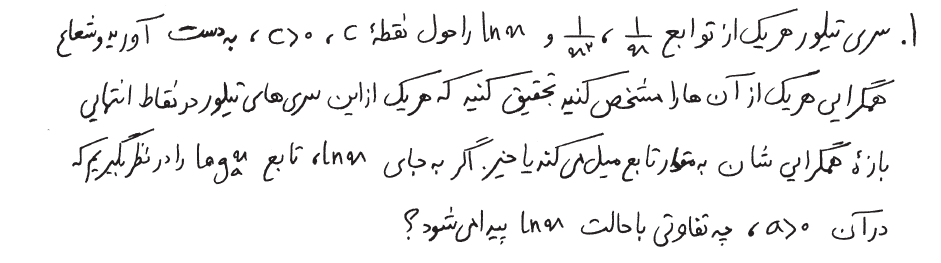 ۱. سری تیلور هر یک از توابع 1/x ، 1/x² و ln x را حول نقطهٔ c ، c>0 ، به‌دست آورید و شعاع
همگرایی هر یک از آن ها را مشخص کنید تحقیق کنید که هر یک از این سری‌های تیلور در نقاط انتهایی
بازهٔ همگرایی شان به مقدار تابع میل می‌کند یا خیر. اگر به جای ln x، تابع logₐx را در نظر بگیریم که
در آن a>0 ، چه تفاوتی با حالت ln x پیدا می‌شود؟